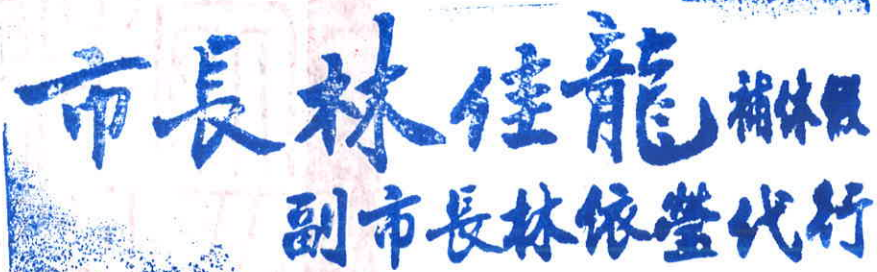 市長林佳龍補休假
副市長林依瑩代行